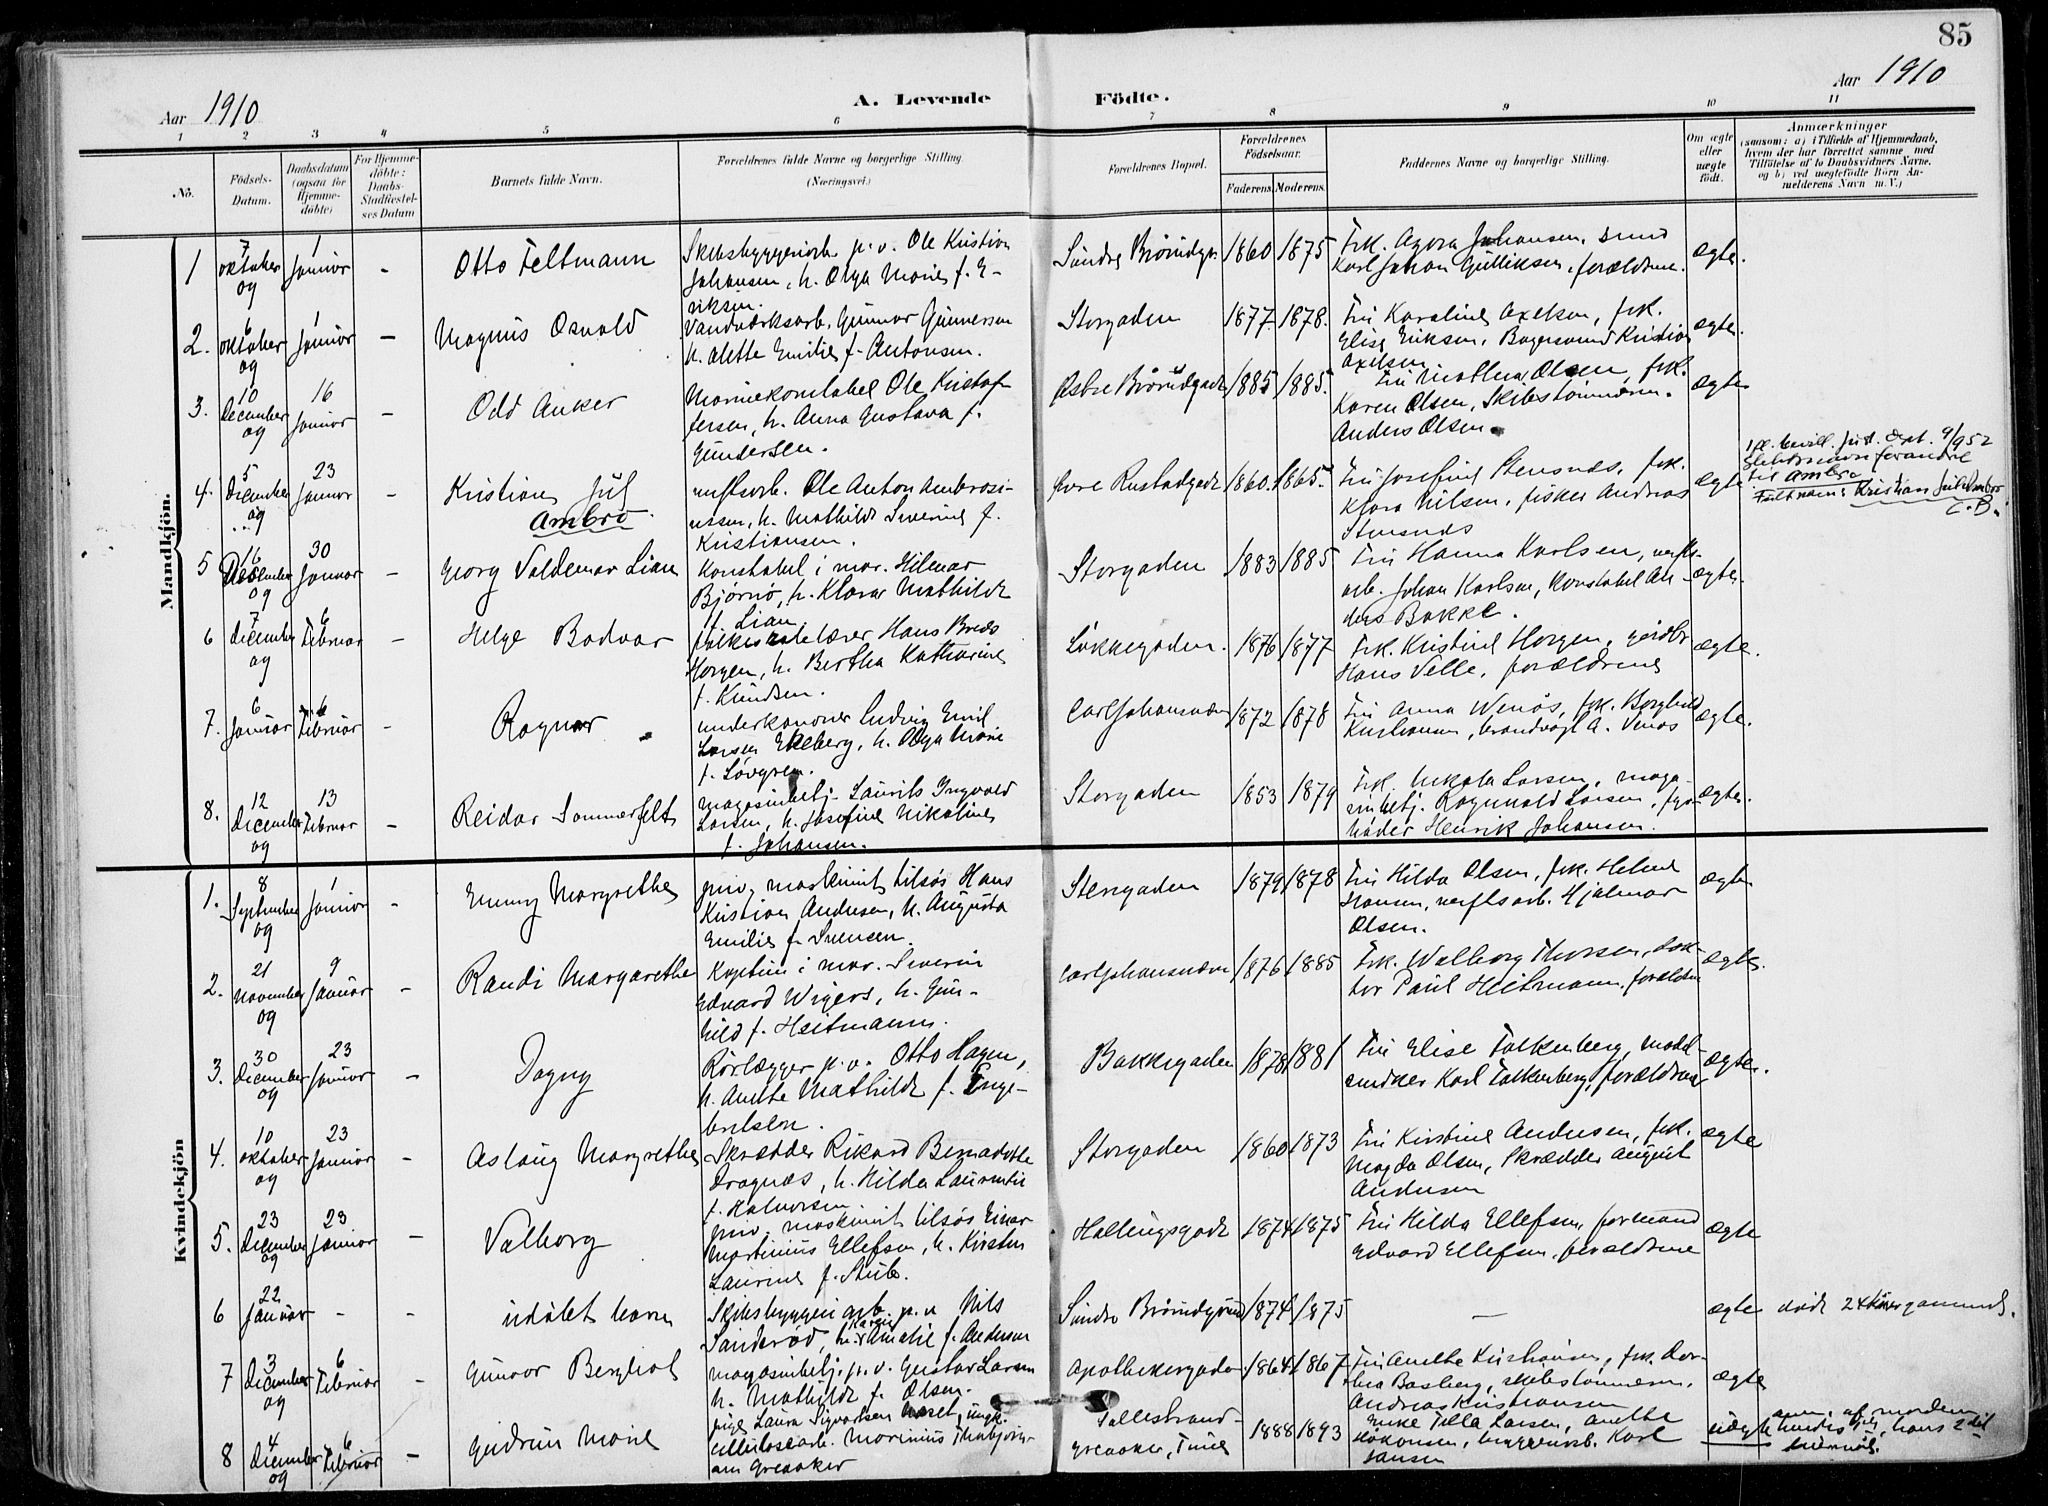 85
Aar 1910
A. Levende Födte.
Aar 1910
1 2 3 4 5 6 7 8 9 10 11
No.
Födsels-Datum.
Daabsdatum (ogsaa for Hjemme-döbte)
For Hjemme-döbte: Daabs-Stadfæstel-ses Datum
Barnets fulde Navn.
Forældrenes fulde Navne og borgerlige Stilling. (Næringsvei.)
Forældrenes Bopæl.
Forældrenes Födselsaar.
Faderens. Moderens.
Faddernes Navne og borgerlige Stilling.
Om ægte eller uægte födt.
Anmærkninger
(saasom: a) i Tilfælde af Hjemmedaab, hvem der har forrettet samme, med Tilföielse af to Daabsvidners Navne. og b) ved uægtefödte Börn An-melderens Navn m. V.)
Mandkjön.
1 7 oktober 09 1 Januar - Otto Feltmann
Skibsbyggeriarb. p. v. Ole Kristian
Johansen, h. Olga Marie f. E-
riksen.
Söndre Brönndgt. 1860 1875
Frk. Agora Johansen, smed
Karl Johan Gulliksen, forældrene.
ægte.
2. 6 oktober 09 1 Januar - Magnus Osvald
Vandværksarb. Gunnar Gunnersen
h. Anette Emilie f. Antonsen.
Storgaden 1877 1878.
Fru Karoline Axelsen, frk.
Elise Eriksen, Bagersvend Kristian
Axelsen
ægte.
3. 10 December 09 16 Januar - Odd Anker
Marinekonstabel Ole Kristof-
fersen, h. Anna Gustava f.
Gundersen.
Östre Brönndgade 1885 1885.
Fru Mathea Olsen, frk.
Karen Olsen, Skibstömmerm.
Anders Olsen.
ægte
4. 5 December 09 23 Januar - Kristian Jul
Ambro
verftsarb. Ole Anton Ambrosi-
ussen, h. Mathilde Severine f.
Kristiansen.
Övre Rustadgade 1860. 1865.
Fru Josefine Stensnes, frk.
Klara Nilsen, fisker Andreas
Stensnes
ægte
Ifl. bevill. just. dept. 9/952
slektsnavn forandret
til Ambro
Fullt navn: Kristian Jul Ambro
C.B.
5 16 December 09 30 Januar - Georg Valdemar Lian
Konstabel i mar. Hilmar
Bjornö, h. Klara Mathilde
f. Lian.
Storgaden 1883 1885
Fru Hanna Karlsen, verfts-
arb. Johan Karlsen, Konstabel An-
ders Bakke.
ægte.
6 7 December 09 6 Februar - Helge Bodvar
folkeskolelærer Hans Breds
Horgen, h. Bertha Katharine
f. Knudsen.
Lökkegaden. 1876 1877
Frk. Kristine Horgen, gårdbr.
Hans Velle, forældrene
ægte.
7. 6 Januar 6 Februar - Ragnar
underkanoner Ludvig Emil
Larsen Ekeberg, h. Olga Marie
f. Lövgren.
Carl Johansværn 1872 1878
Fru Anna Wenös, frk. Borghild
Kristiansen, brandvogt A. Venös
ægte.
8. 12 December 09 13 Februar - Reidar Sommerfelt
magasinbetj. Laurits Ingvald
Larsen, h. Josefine Nikoline
f. Johansen.
Storgaden 1853 1879
Frk. Nikola Larsen, maga-
sinbetj. Ragnvald Larsen, fyr-
böder Henrik Johansen.
ægte.
Kvindekjön
1. 8 September 09 1 Januar - Emmy Margrethe
priv. maskinist tilsös Hans
Kristian Andersen, h. Augusta
Emilie f. Svensen.
Storgaden 1879 1878
Fru Hilda Olsen, frk. Helene
Hansen, verftsarb. Hjalmar
Olsen.
ægte
2. 21 November 09 9 Januar - Randi Margarethe
Kaptein i mar. Severin
Edvard Wigers, h. Gun-
hild f. Heitmann.
Carl Johansværn 1876 1885
Frk. Walborg Thorsen, dok-
tor Paul Heitmann, forældrene
ægte.
3. 30 December 09 23 Januar - Dagny
Rörlægger p. v. Otto Hagen,
h. Anette Mathilde f. Enge-
bretsen.
Bakkegaden 1878 1881
Fru Elise Falkenberg, model-
snekker Karl Falkenberg, forældrene
ægte.
4. 10 oktober 09 23 Januar - Aslaug Margrethe
Skrædder Rikard Bernadotte
Dragnæs, h. Hilda Laurentie
f. Halvorsen
Storgaden 1860 1873
Fru Kirstine Andersen, frk.
Magda Olsen, Skrædder August
Andersen
ægte
5. 23 December 09 23 Januar - Valborg
priv. maskinist tilsös Einar
Martinius Ellefsen, h. Kirsten
Laurine f. Stub.
Hallingsgade 1874 1875
Fru Hilda Ellefsen, formand
Edvard Ellefsen, forældrene
ægte
6 22 Januar - - udöbt barn
Skibsbyggeriarb. p. v. Nils
Sanderöd, h. Karen Amalie f. Andersen
Söndre Brönndgade 1874 1875
-
ægte
död 24 timer gammel.
7 3 December 09 6 Februar - Gunvor Bergliot
magasinbetj. p. v. Gustav Larsen
h. Mathilde f. Olsen.
Apothekergaden 1864 1867
Fru Anethe Kristiansen, frk. Dor-
thea Basberg, skibstömmerm.
Andreas Kristiansen
ægte
8 4 December 09 6 Februar - Gudrun Marie
pige Laura Sigvartsen Næset, ungk.
cellulosearb. Marinius Thorbjörn-
sen Greaaker
Sollestrand-
Greaaker, Tune
1888 1893
Enke Tilla Larsen, Anethe
Håkonsen, byggeriarb. Karl
Jansen
uægte
anm. af moderen
hendes 1ste, hans 2det